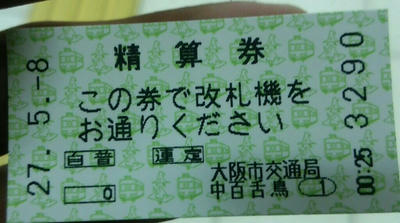 精算券
この券で改札機を
お通りください
自普 運定
0
大阪市交通局
中百舌鳥 1
27.5.-8
3290
00:25